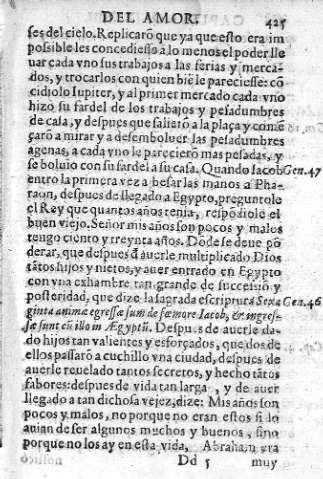 DEL AMOR. 425
ses del cielo. Replicarõ que ya que esto era im
possible les concediesse a lo menos el poder lle
uar cada vno sus trabajos a las ferias y merca-
dos, y trocarlos con quien biẽ le pareciesse: cõ
cidiolo Iupiter, y al primer mercado cada vno
hizo su fardel de los trabajos y pesadumbres
de casa, y despues que salierõ a la plaça y comẽ
çarõ a mirar y a desemboluer las pesadumbres
agenas, a cada vno le parecierõ mas pesadas, y
se boluio con su fardel a su casa. Quando Iacob Gen. 47
entro la primera vez a besar las manos a Pha-
raon, despues de llegado a Egypto, preguntole
el Rey que quantos años tenia, respõdiole el
buen viejo. Señor mis años son pocos y malos
tengo ciento y treynta años. Dõde se deue põ
derar, que despues d̃ auerle multiplicado Dios
tãtos hijos y nietos, y auer entrado en Egypto
con vna exhambre tan grande de successiõ y
posteridad, que dize la sagrada escriptura Sexa Gen. 46
ginta animæ egressæ sum de fœmore Iacob, & ingres-
sæ sunt cũ illo in Ægyptũ. Despues de auerle da-
do hijos tan valientes y esforçados, que dos de
ellos passarõ a cuchillo vna ciudad, despues de
auerle reuelado tantos secretos, y hecho tãtos
fabores: despues de vida tan larga, y de auer
llegado a tan dichosa vejez, dize: Mis años son
pocos y malos, no porque no eran estos si lo
auian de ser algunos muchos y buenos, sino
porque no los ay en esta vida, Abrahan era
Dd 5 muy